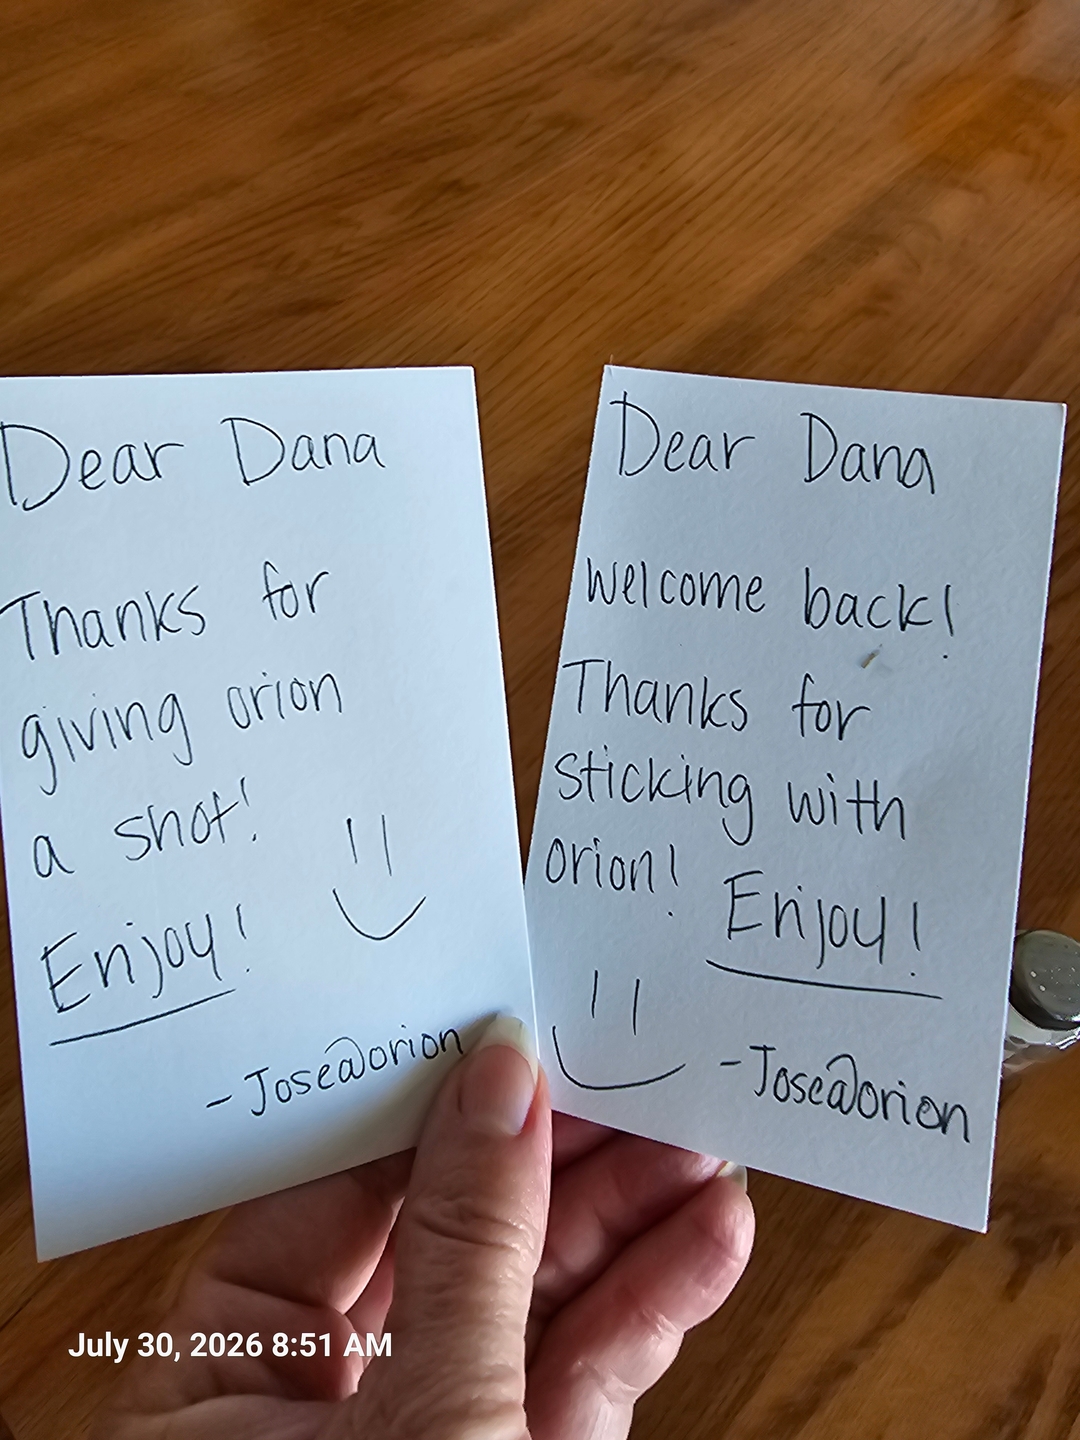 Dear Dana
Thanks for
giving orion
a shot!
Enjoy!
-Jose@orion
Dear Dana
Welcome back!
Thanks for
sticking with
orion!
Enjoy!
-Jose@orion
July 30, 2026 8:51 AM